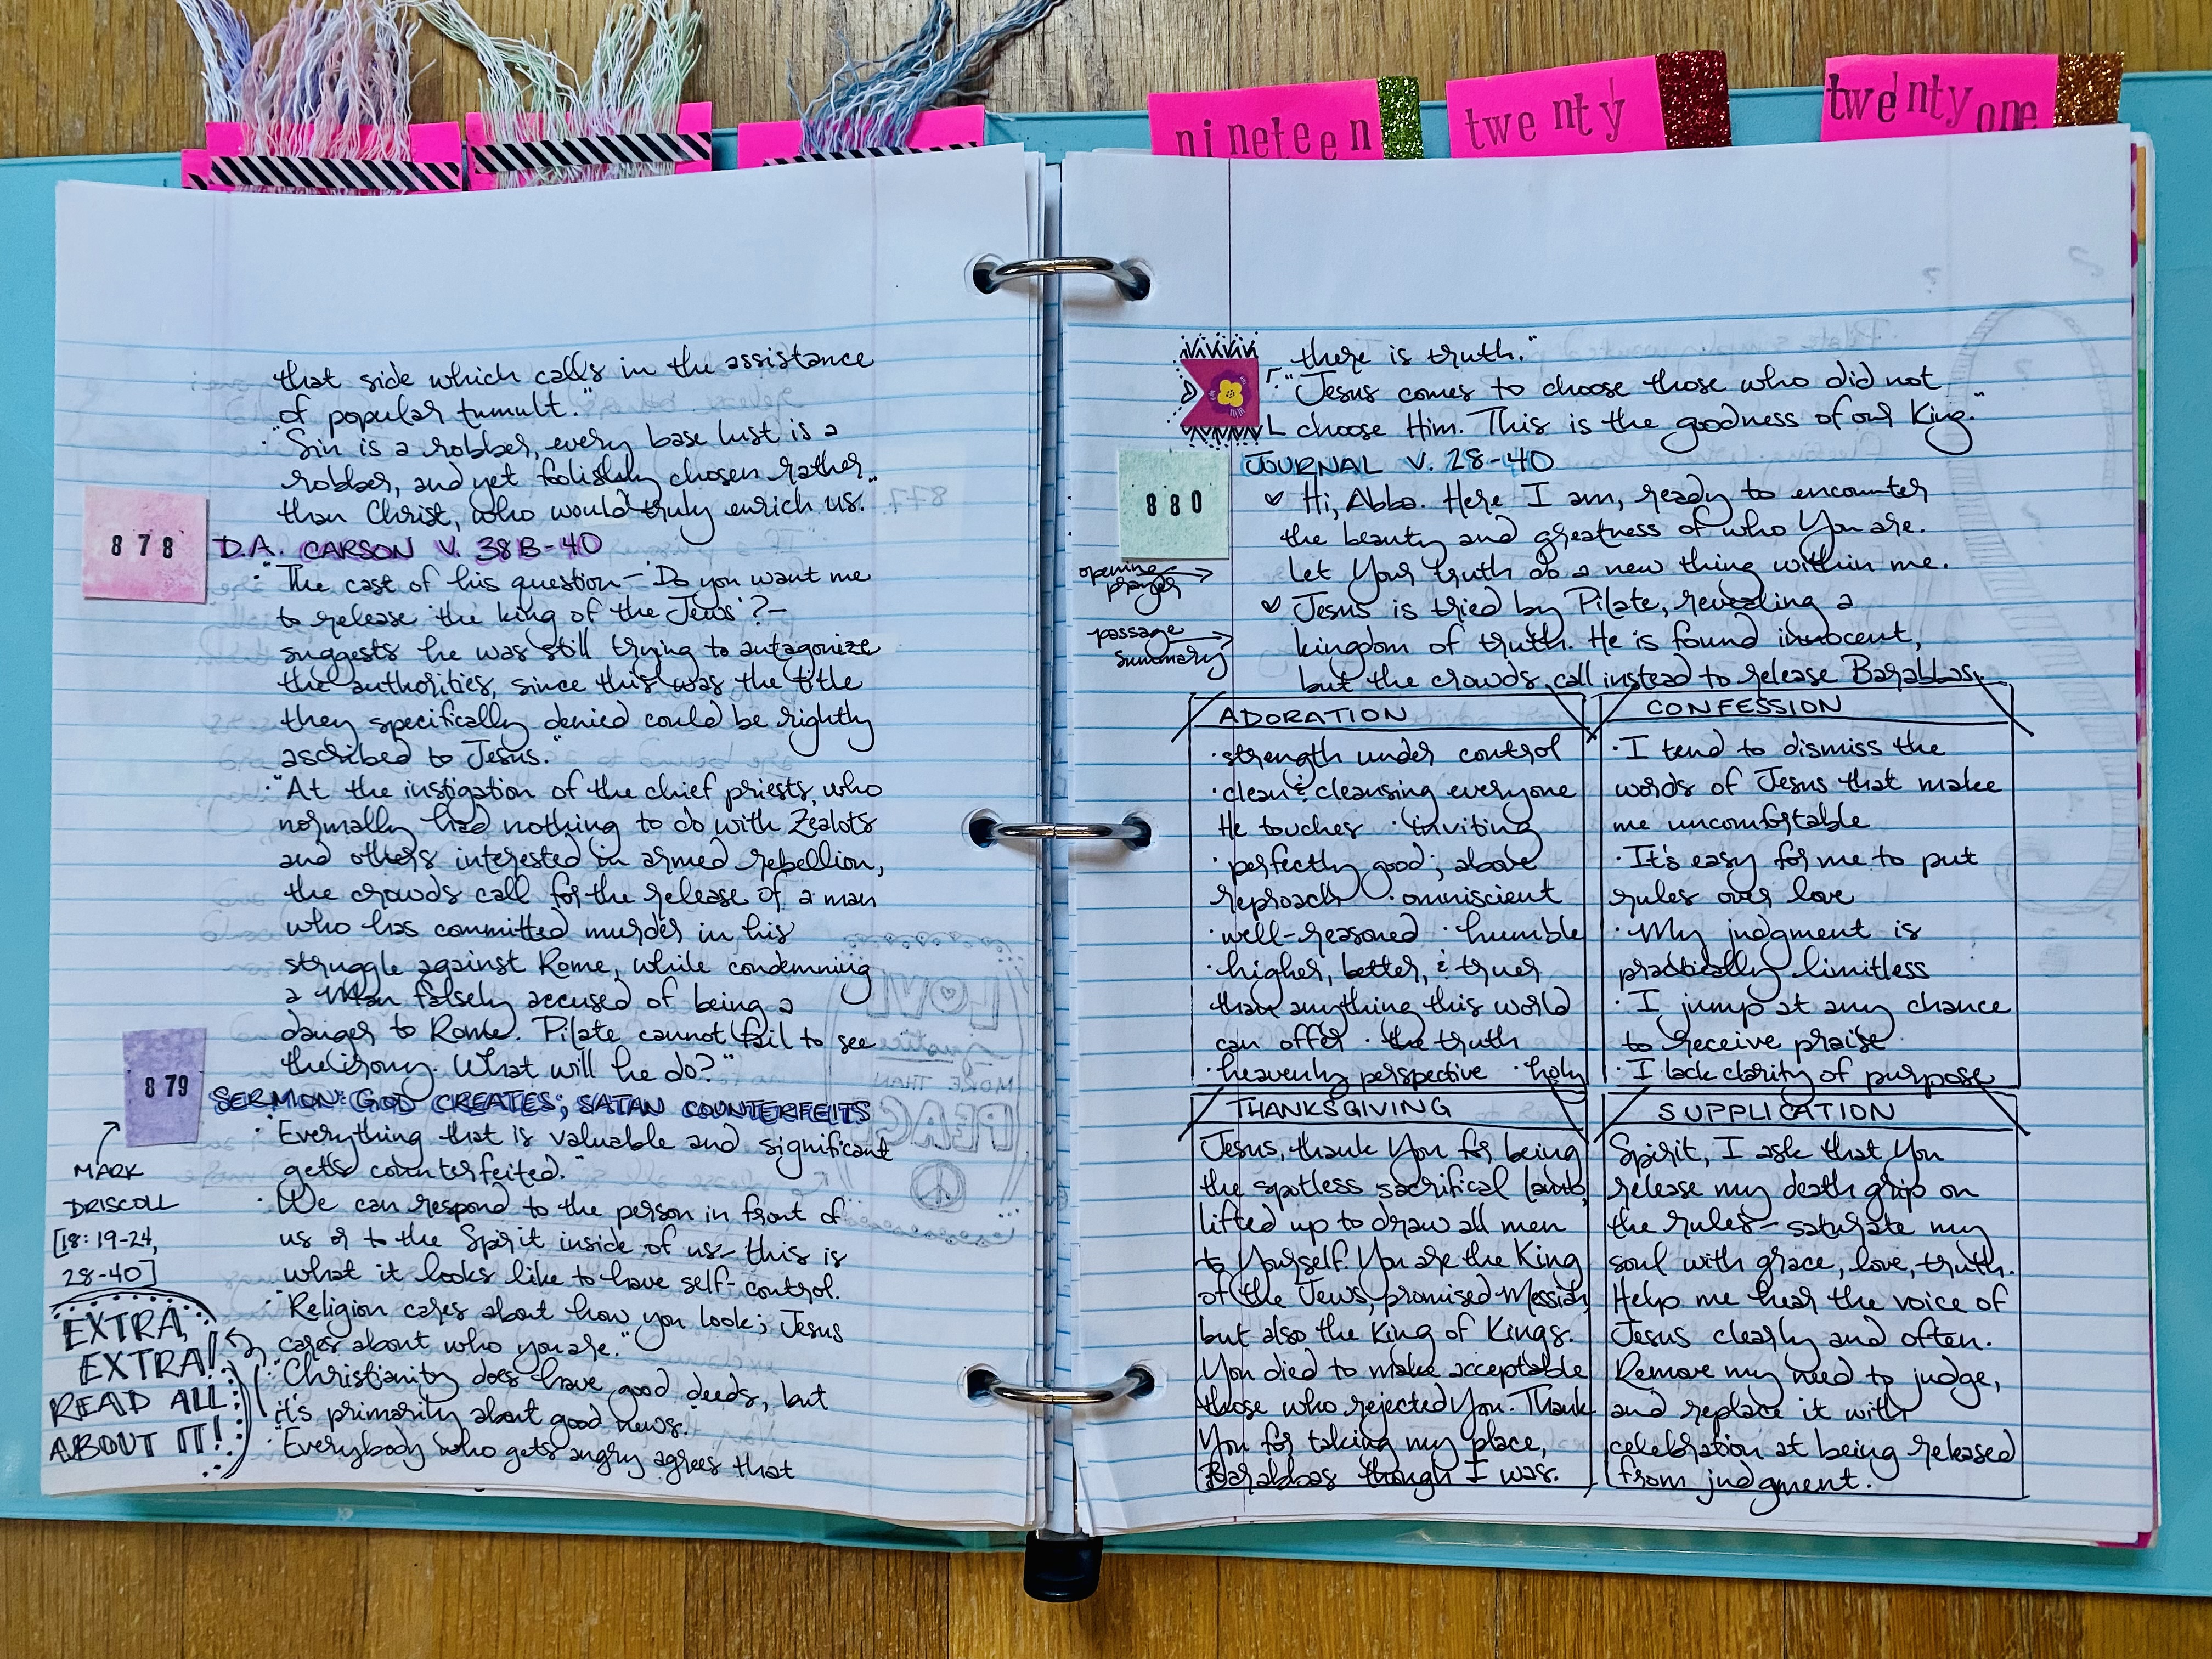 nineteen
twenty
twenty one
that side which calls in the assistance
of popular tumult."
· "Sin is a robber, every base lust is a
robber, and yet foolishly chosen rather
than Christ, who would truly enrich us."
878
D.A. CARSON V. 38B-40
· "The cast of his question – 'Do you want me
to release 'the king of the Jews'? –
suggests he was still trying to antagonize
the authorities, since this was the title
they specifically denied could be rightly
ascribed to Jesus."
· "At the instigation of the chief priests, who
normally had nothing to do with Zealots
and others interested in armed rebellion,
the crowds call for the release of a man
who has committed murder in his
struggle against Rome, while condemning
a man falsely accused of being a
danger to Rome. Pilate cannot fail to see
the irony. What will he do?"
879
SERMON: GOD CREATES; SATAN COUNTERFEITS
MARK
DRISCOLL
[18:19-24,
28-40]
· "Everything that is valuable and significant
gets counterfeited."
· We can respond to the person in front of
us or to the Spirit inside of us – this is
what it looks like to have self-control.
· "Religion cares about how you look; Jesus
cares about who you are."
EXTRA,
EXTRA!
READ ALL
ABOUT IT!
· "Christianity does have good deeds, but
it's primarily about good news."
· "Everybody who gets angry agrees that
there is truth."
· "Jesus comes to choose those who did not
choose Him. This is the goodness of our King."
880
JOURNAL V. 28-40
♡ Hi, Abba. Here I am, ready to encounter
the beauty and greatness of who You are.
Let Your truth do a new thing within me.
opening
prayer
♡ Jesus is tried by Pilate, revealing a
kingdom of truth. He is found innocent,
but the crowds call instead to release Barabbas.
passage
summary
ADORATION
· strength under control
· clean & cleansing everyone
He touches · inviting
· perfectly good; above
reproach · omniscient
· well-reasoned · humble
· higher, better, & truer
than anything this world
can offer · the truth
· heavenly perspective · holy
CONFESSION
· I tend to dismiss the
words of Jesus that make
me uncomfortable
· It's easy for me to put
rules over love
· My judgment is
practically limitless
· I jump at any chance
to receive praise
· I lack clarity of purpose
THANKSGIVING
Jesus, thank You for being
the spotless sacrifical lamb,
lifted up to draw all men
to Yourself. You are the King
of the Jews, promised Messiah,
but also the King of Kings.
You died to make acceptable
those who rejected You. Thank
You for taking my place,
Barabbas though I was.
SUPPLICATION
Spirit, I ask that You
release my death grip on
the rules – saturate my
soul with grace, love, truth.
Help me hear the voice of
Jesus clearly and often.
Remove my need to judge,
and replace it with
celebration at being released
from judgment.